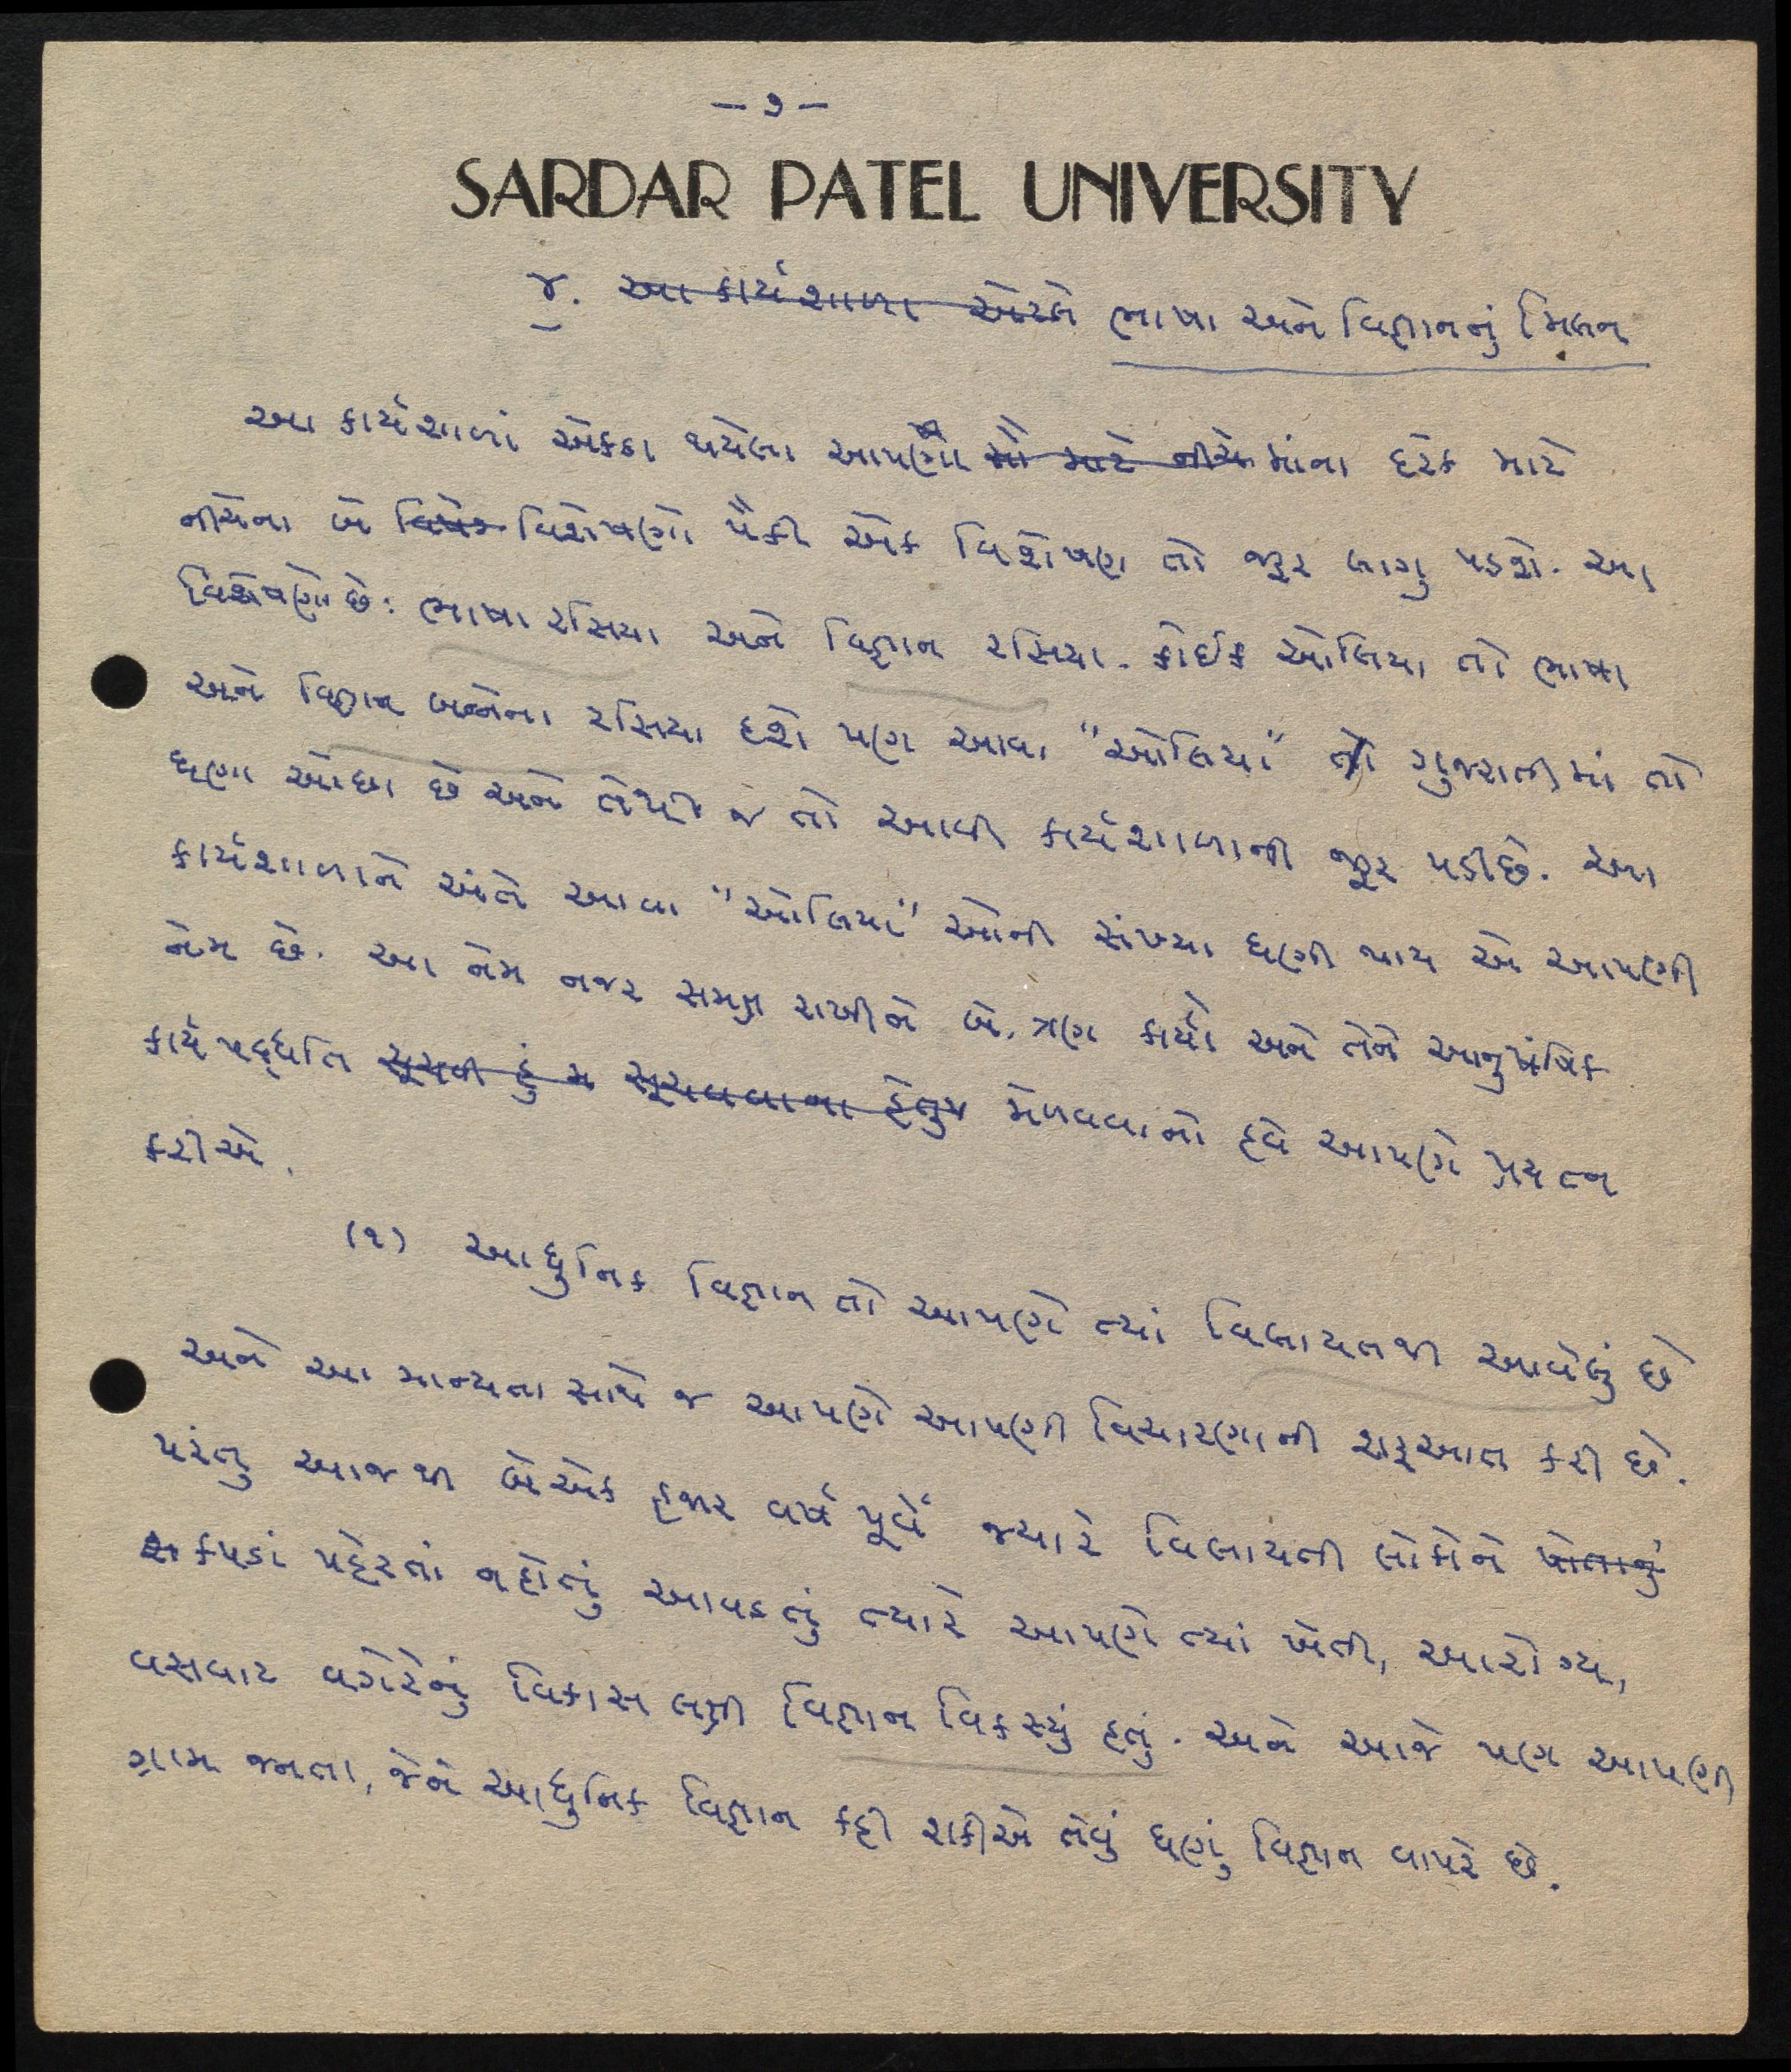 - ૭ -
SARDAR PATEL UNIVERSITY
૪. આ કાર્યશાળા એટલે ભાષા અને વિજ્ઞાનનું મિલન
આ કાર્યશાળાં એકઠા થયેલા આપણાં સૌ માટે નીચે માંના દરેક માટે
નીચેના બે વિશેષણો પૈકી એક વિશેષણ તો જરૂર લાગુ પડશે. આ
વિશેષણો છે: ભાષા રસિયા અને વિજ્ઞાન રસિયા. કોઈક ઓલિયા તો ભાષા
અને વિજ્ઞાન બન્નેના રસિયા હશે પણ આવા "ઓલિયા" તો ગુજરાતીમાં તો
ઘણા ઓછા છે અને તેથી જ તો આવી કાર્યશાળાની જરૂર પડી છે. આ
કાર્યશાળાને અંતે આવા "ઓલિયા" ઓની સંખ્યા ઘણી થાય એ આપણી
નેમ છે. આ નેમ નજર સમક્ષ રાખીને બે, ત્રણ કાર્યો અને તેને આનુષંગિક
કાર્ય પદ્ધતિ સૂચવી હું મ સૂચવવાના હેતુથ મેળવવાનો હવે આપણે પ્રયત્ન
કરીએ.
(૧) આધુનિક વિજ્ઞાન તો આપણે ત્યાં વિલાયતથી આવેલું છે
અને આ માન્યતા સાથે જ આપણે આપણી વિચારણાની શરૂઆત કરી છે.
પરંતુ આજથી બેએક હજાર વર્ષ પૂર્વે જ્યારે વિલાયતી લોકોને પોતાનું
કપડાં પહેરતાં નહોતું આવડતું ત્યારે આપણે ત્યાં ખેતી, આરોગ્ય,
વસવાટ વગેરેનું વિકાસ લક્ષી વિજ્ઞાન વિકસ્યું હતું. અને આજે પણ આપણી
ગ્રામ જનતા, જેને આધુનિક વિજ્ઞાન કહી શકીએ તેવું ઘણું વિજ્ઞાન વાપરે છે.